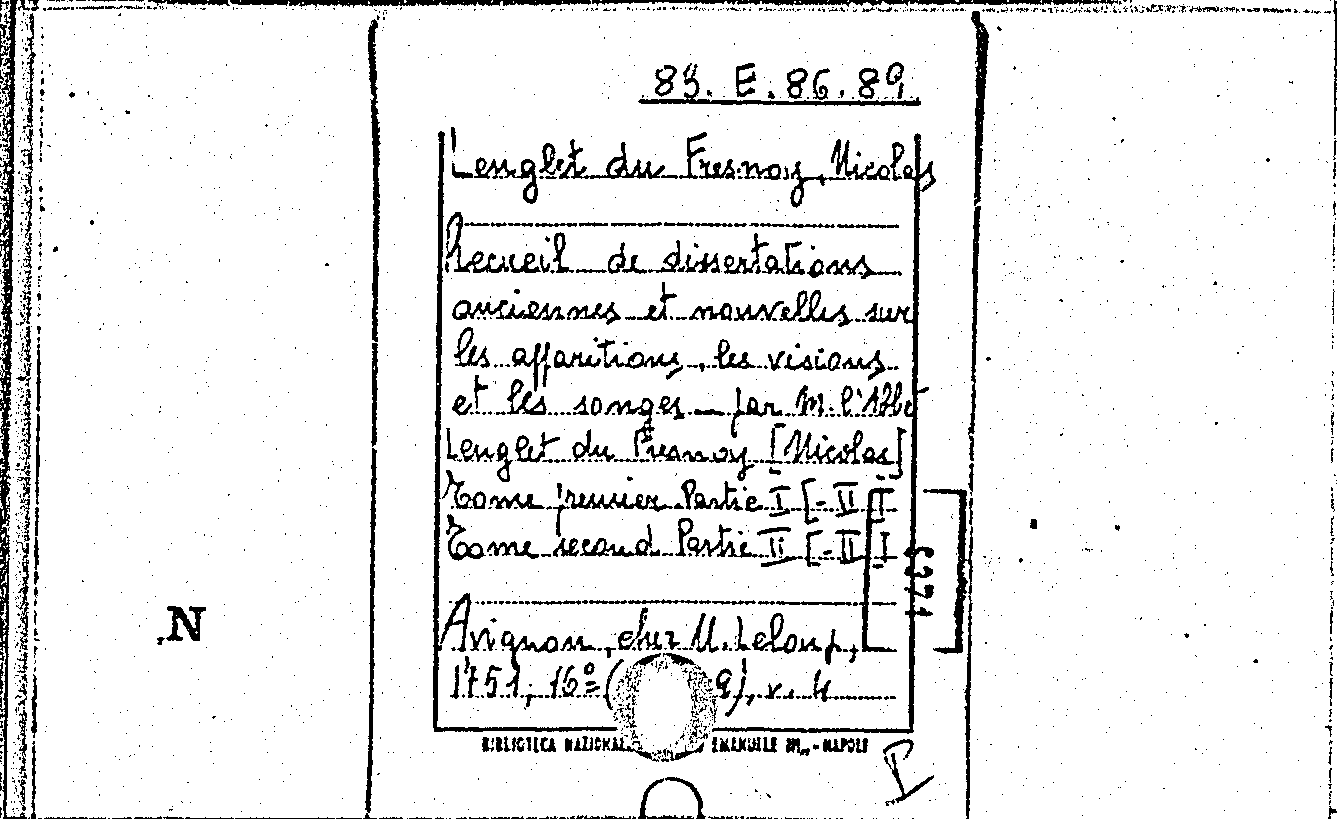 83. E. 86.89
Lenglet du Fresnoy, Nicolas
Recueil de dissertations
anciennes et nouvelles sur
les apparitions, les visions
et les songes — par M. l'Abbé
Lenglet du Fresnoy [Nicolas]
Tome premier Partie I [-II]
Tome second Partie II [-II]
6371
N
Avignon, chez M. Leloup,
1751, 16º ( 9), v. 4
BIBLIOTECA NAZIONAL EMANUELE III - NAPOLI